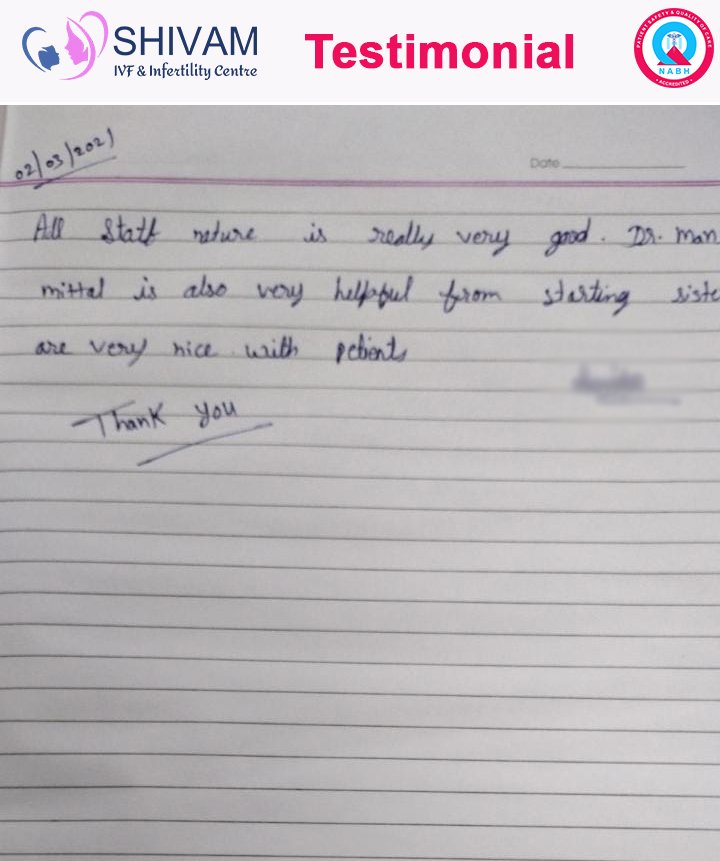 SHIVAM
IVF & Infertility Centre
Testimonial
PATIENT SAFETY & QUALITY OF CARE
NABH
• ACCREDITED •
02/03/2021
Date
All Staff nature is really very good. Dr. Man
mittal is also very helpful from starting siste
are very nice with petients
Thank you